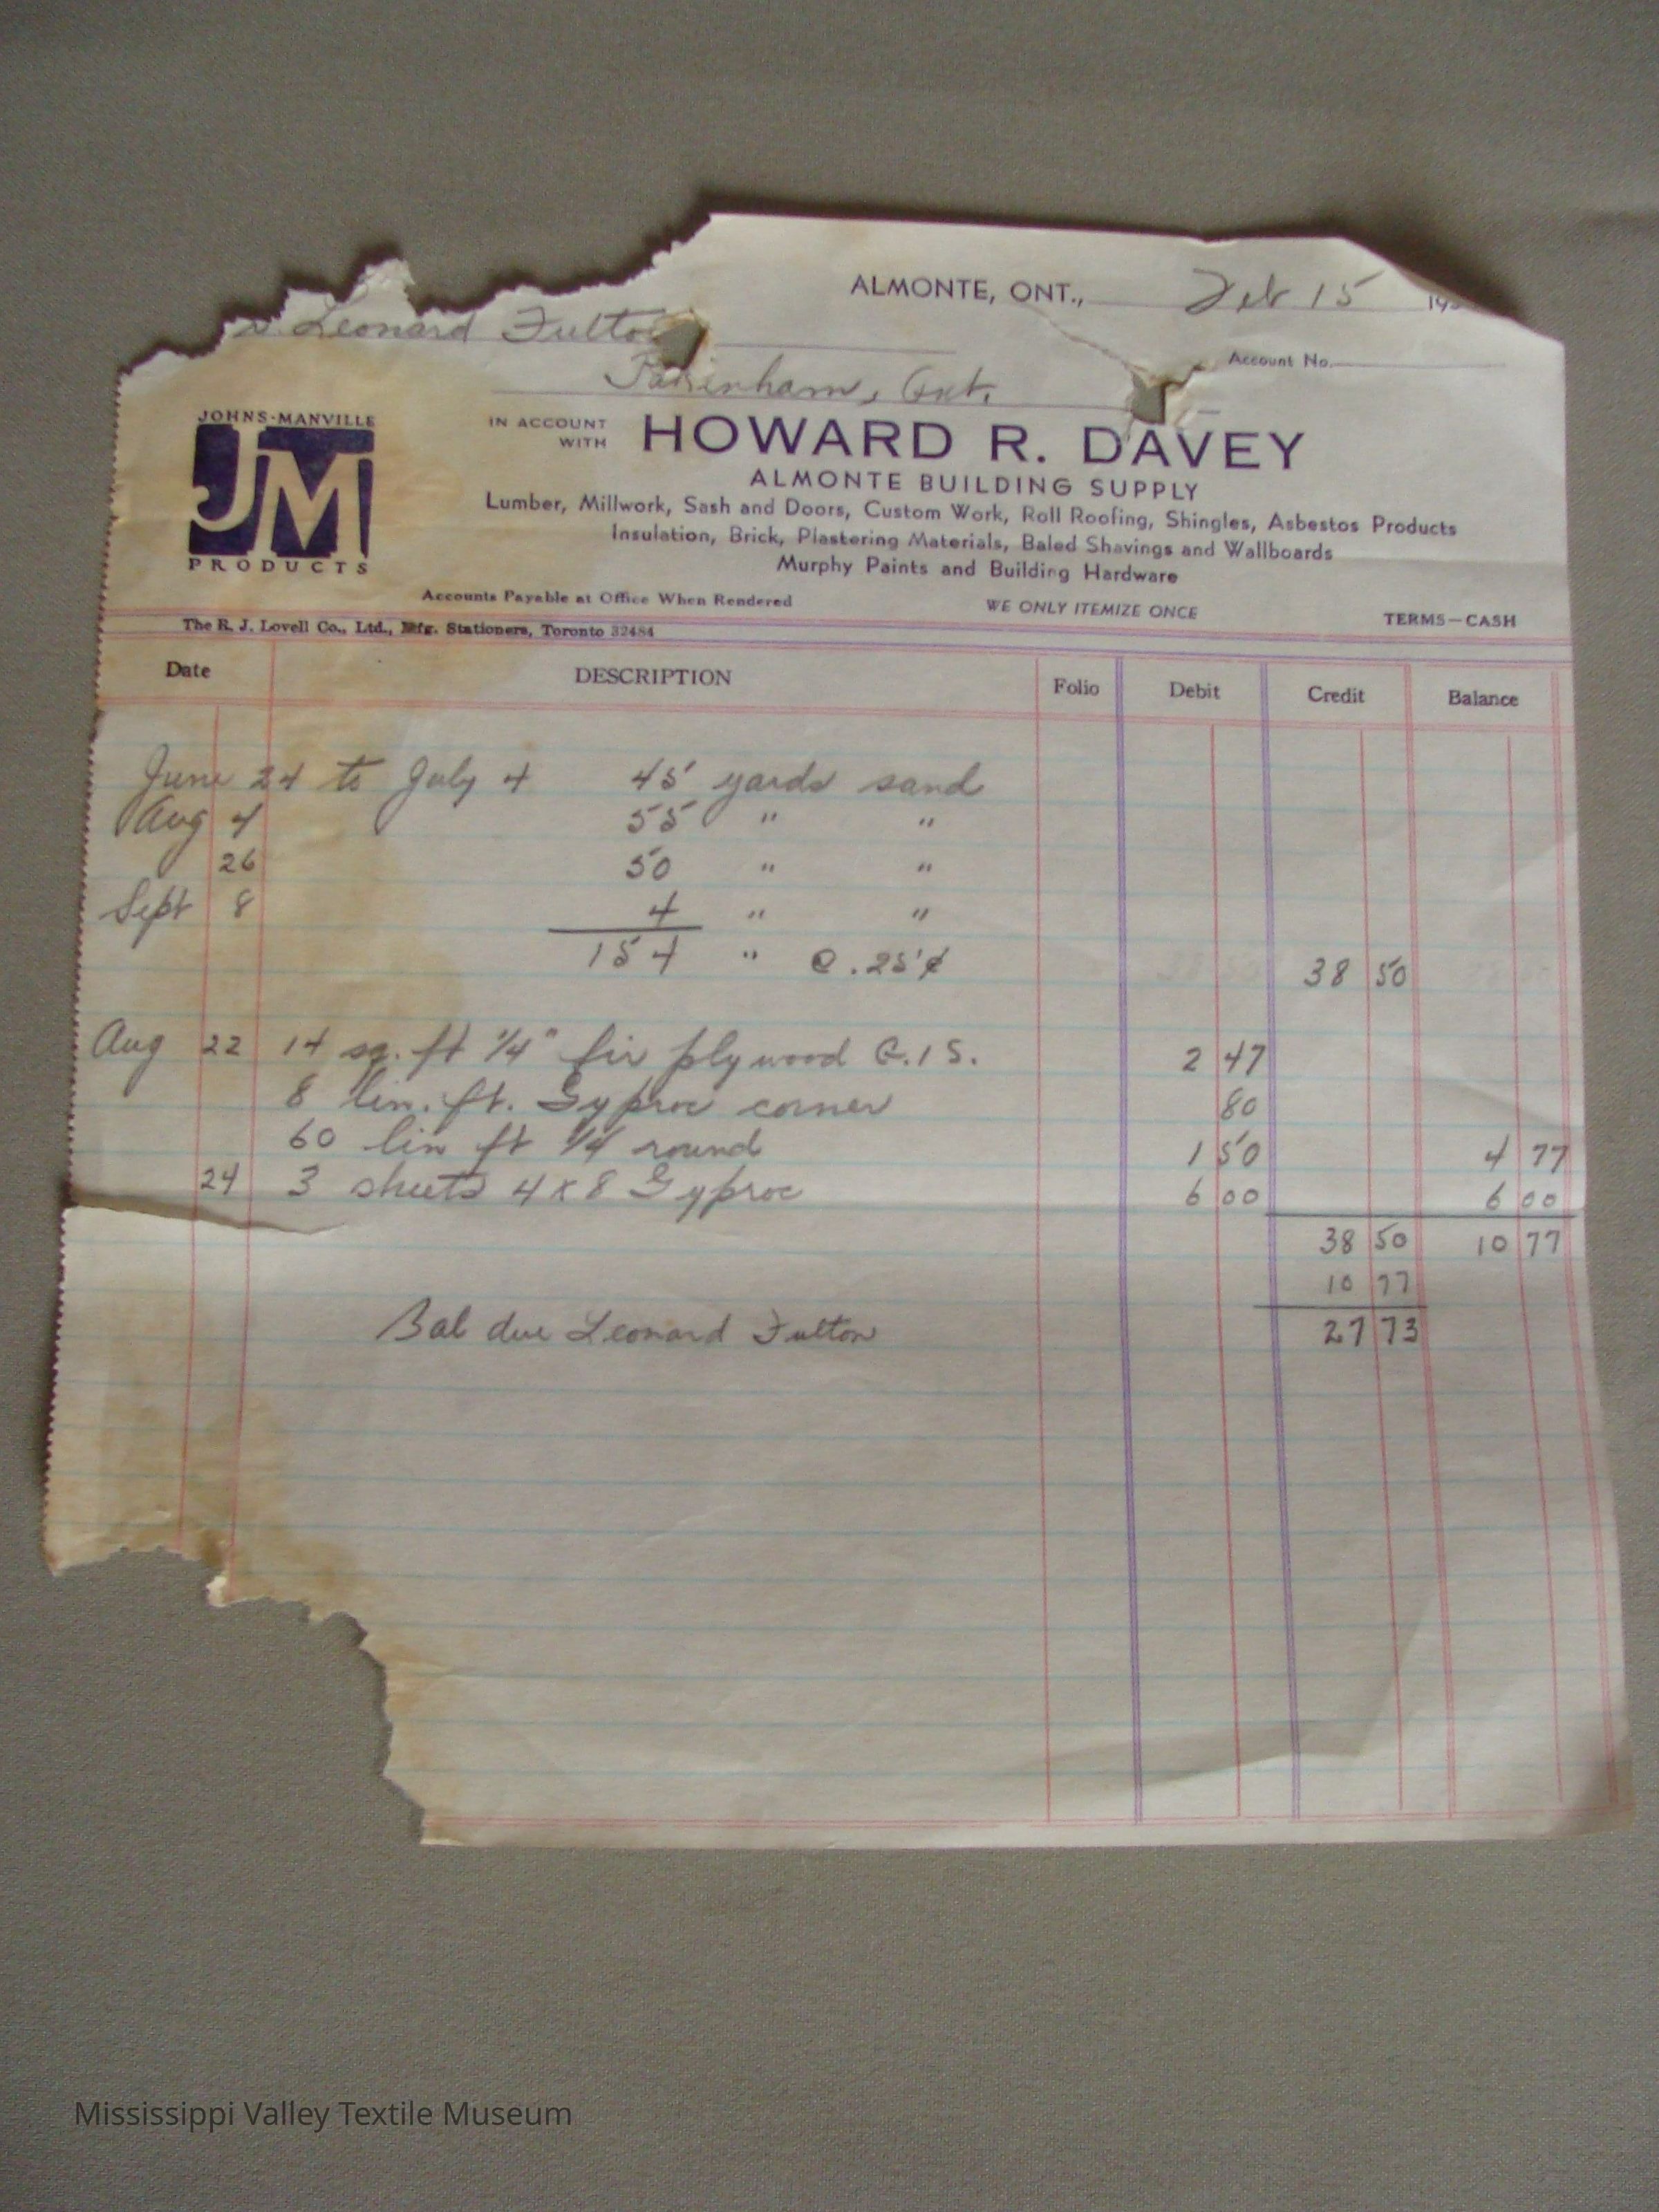 ALMONTE, ONT., Feb 15 19
Leonard Fulton
Account No.
Pakenham, Ont.
JOHNS-MANVILLE
JM
PRODUCTS
IN ACCOUNT WITH HOWARD R. DAVEY
ALMONTE BUILDING SUPPLY
Lumber, Millwork, Sash and Doors, Custom Work, Roll Roofing, Shingles, Asbestos Products
Insulation, Brick, Plastering Materials, Baled Shavings and Wallboards
Murphy Paints and Building Hardware
Accounts Payable at Office When Rendered WE ONLY ITEMIZE ONCE TERMS—CASH
The R. J. Lovell Co., Ltd., Mfg. Stationers, Toronto 32484
Date DESCRIPTION Folio Debit Credit Balance
June 24 to July 4 45 yards sand
Aug 4 55 " "
26 50 " "
Sept 8 4 " "
154 " @ .25¢ 38 50
Aug 22 14 sq. ft 1/4" fir plywood G.1S. 2 47
8 lin. ft. Gyproc corner 80
60 lin ft 1/4 round 1 50 4 77
24 3 sheets 4 x 8 Gyproc 6 00 6 00
38 50 10 77
10 77
Bal due Leonard Fulton 27 73
Mississippi Valley Textile Museum